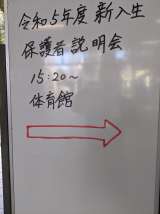 令和5年度 新入生
保護者 説明会
15:20~
体育館